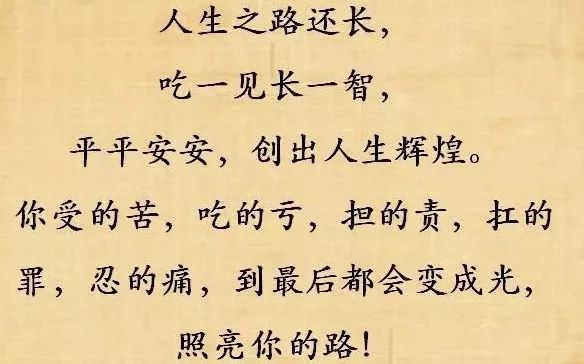 人生之路还长，
吃一见长一智，
平平安安，创出人生辉煌。
你受的苦，吃的亏，担的责，扛的
罪，忍的痛，到最后都会变成光，
照亮你的路！